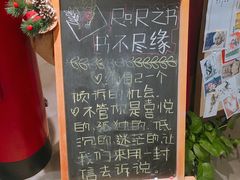 咫尺之书
书不尽缘
给自己一个
倾诉的机会,
不管你是喜悦
的、孤独的、低
沉的、迷茫的,让
我们来用一封
信去诉说。